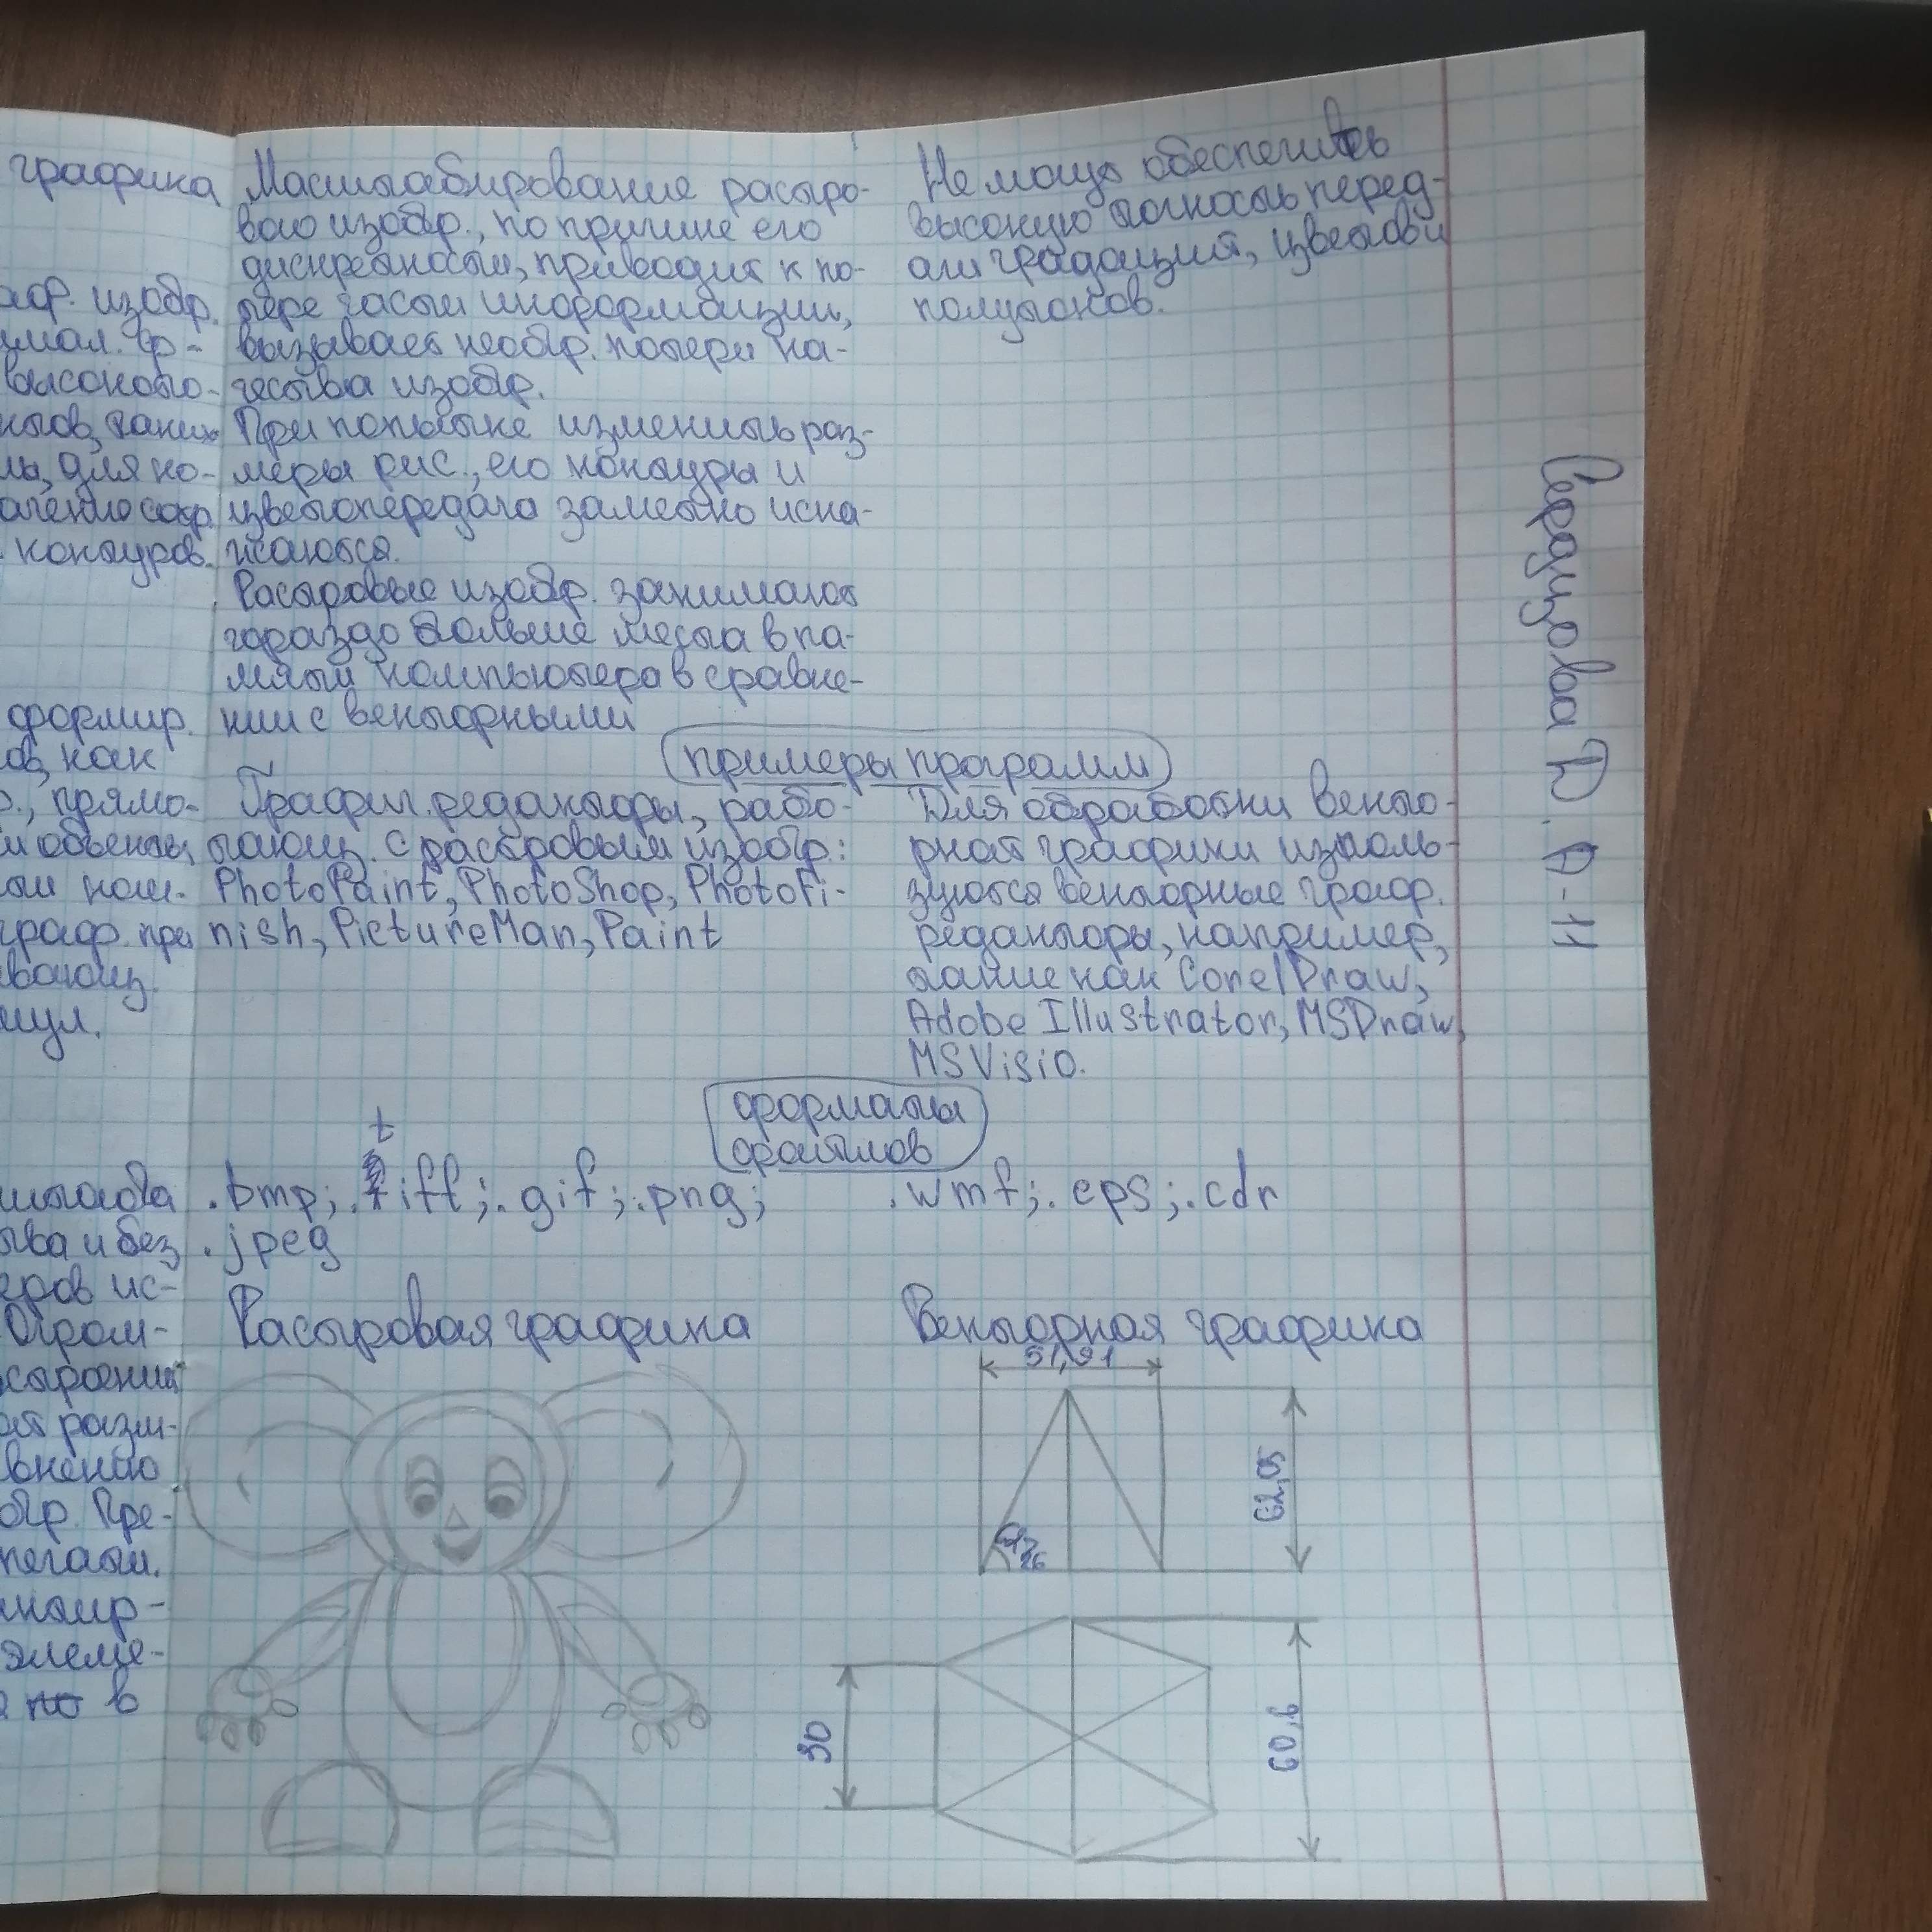 графика
аф. изобр.
высоково-
контуров.
формир.
ов, как
прямо-
и объекты,
граф. при
мул.
штаба
ства и без
еров ис-
Огром-
внению
обр. Пре-
печати.
элеме-
в
Масштабирование растро-
вого изобр., по причине его
дискретности, приводит к по-
тере части информации,
вызывает необр. потери ка-
чества изобр.
При попытке изменить раз-
меры рис., его контуры и
цветопередача заметно иска-
жаются.
Растровые изобр. занимают
гораздо больше места в па-
мяти компьютера в сравне-
нии с векторными
Не может обеспечить
высокую точность перед-
ачи градаций, цветов и
полутонов.
примеры программ
График. редакторы, рабо-
тающ. с растровым изобр.:
PhotoPaint, PhotoShop, PhotoFi-
nish, PictureMan, Paint
Для обработки векто-
рной графики исполь-
зуются векторные граф.
редакторы, например,
такие как CorelDraw,
Adobe Illustrator, MSDraw,
MSVisio.
форматы
файлов
t
.bmp; .tiff; .gif; .png;
.jpeg
.wmf; .eps; .cdr
Растровая графика
Векторная графика
51,91
62,05
30
60,6
Середцова D. А-11